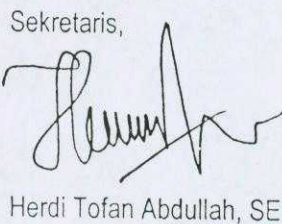 Sekretaris,
Herdi Tofan Abdullah, SE